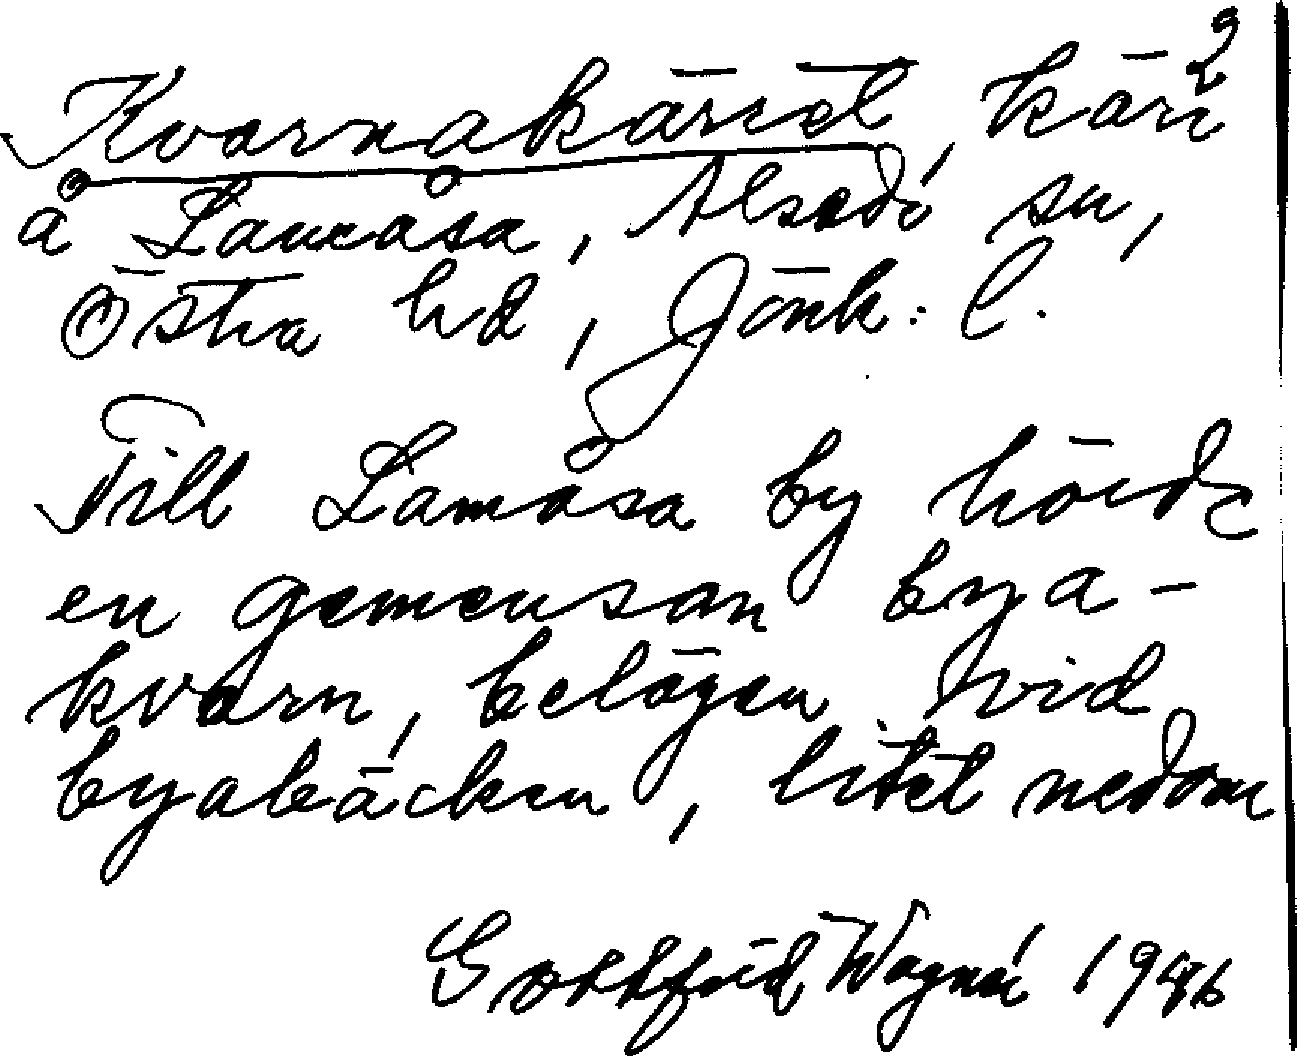 Kvarnakärret, kärr 2
å Lamåsa, Alseda sn,
Östra hd, Jönk. l.
Till Lamåsa by hörde
en gemensam bya-
kvarn, belägen vid
byabäcken, litet nedom
Gottfrid Wagnér 1946